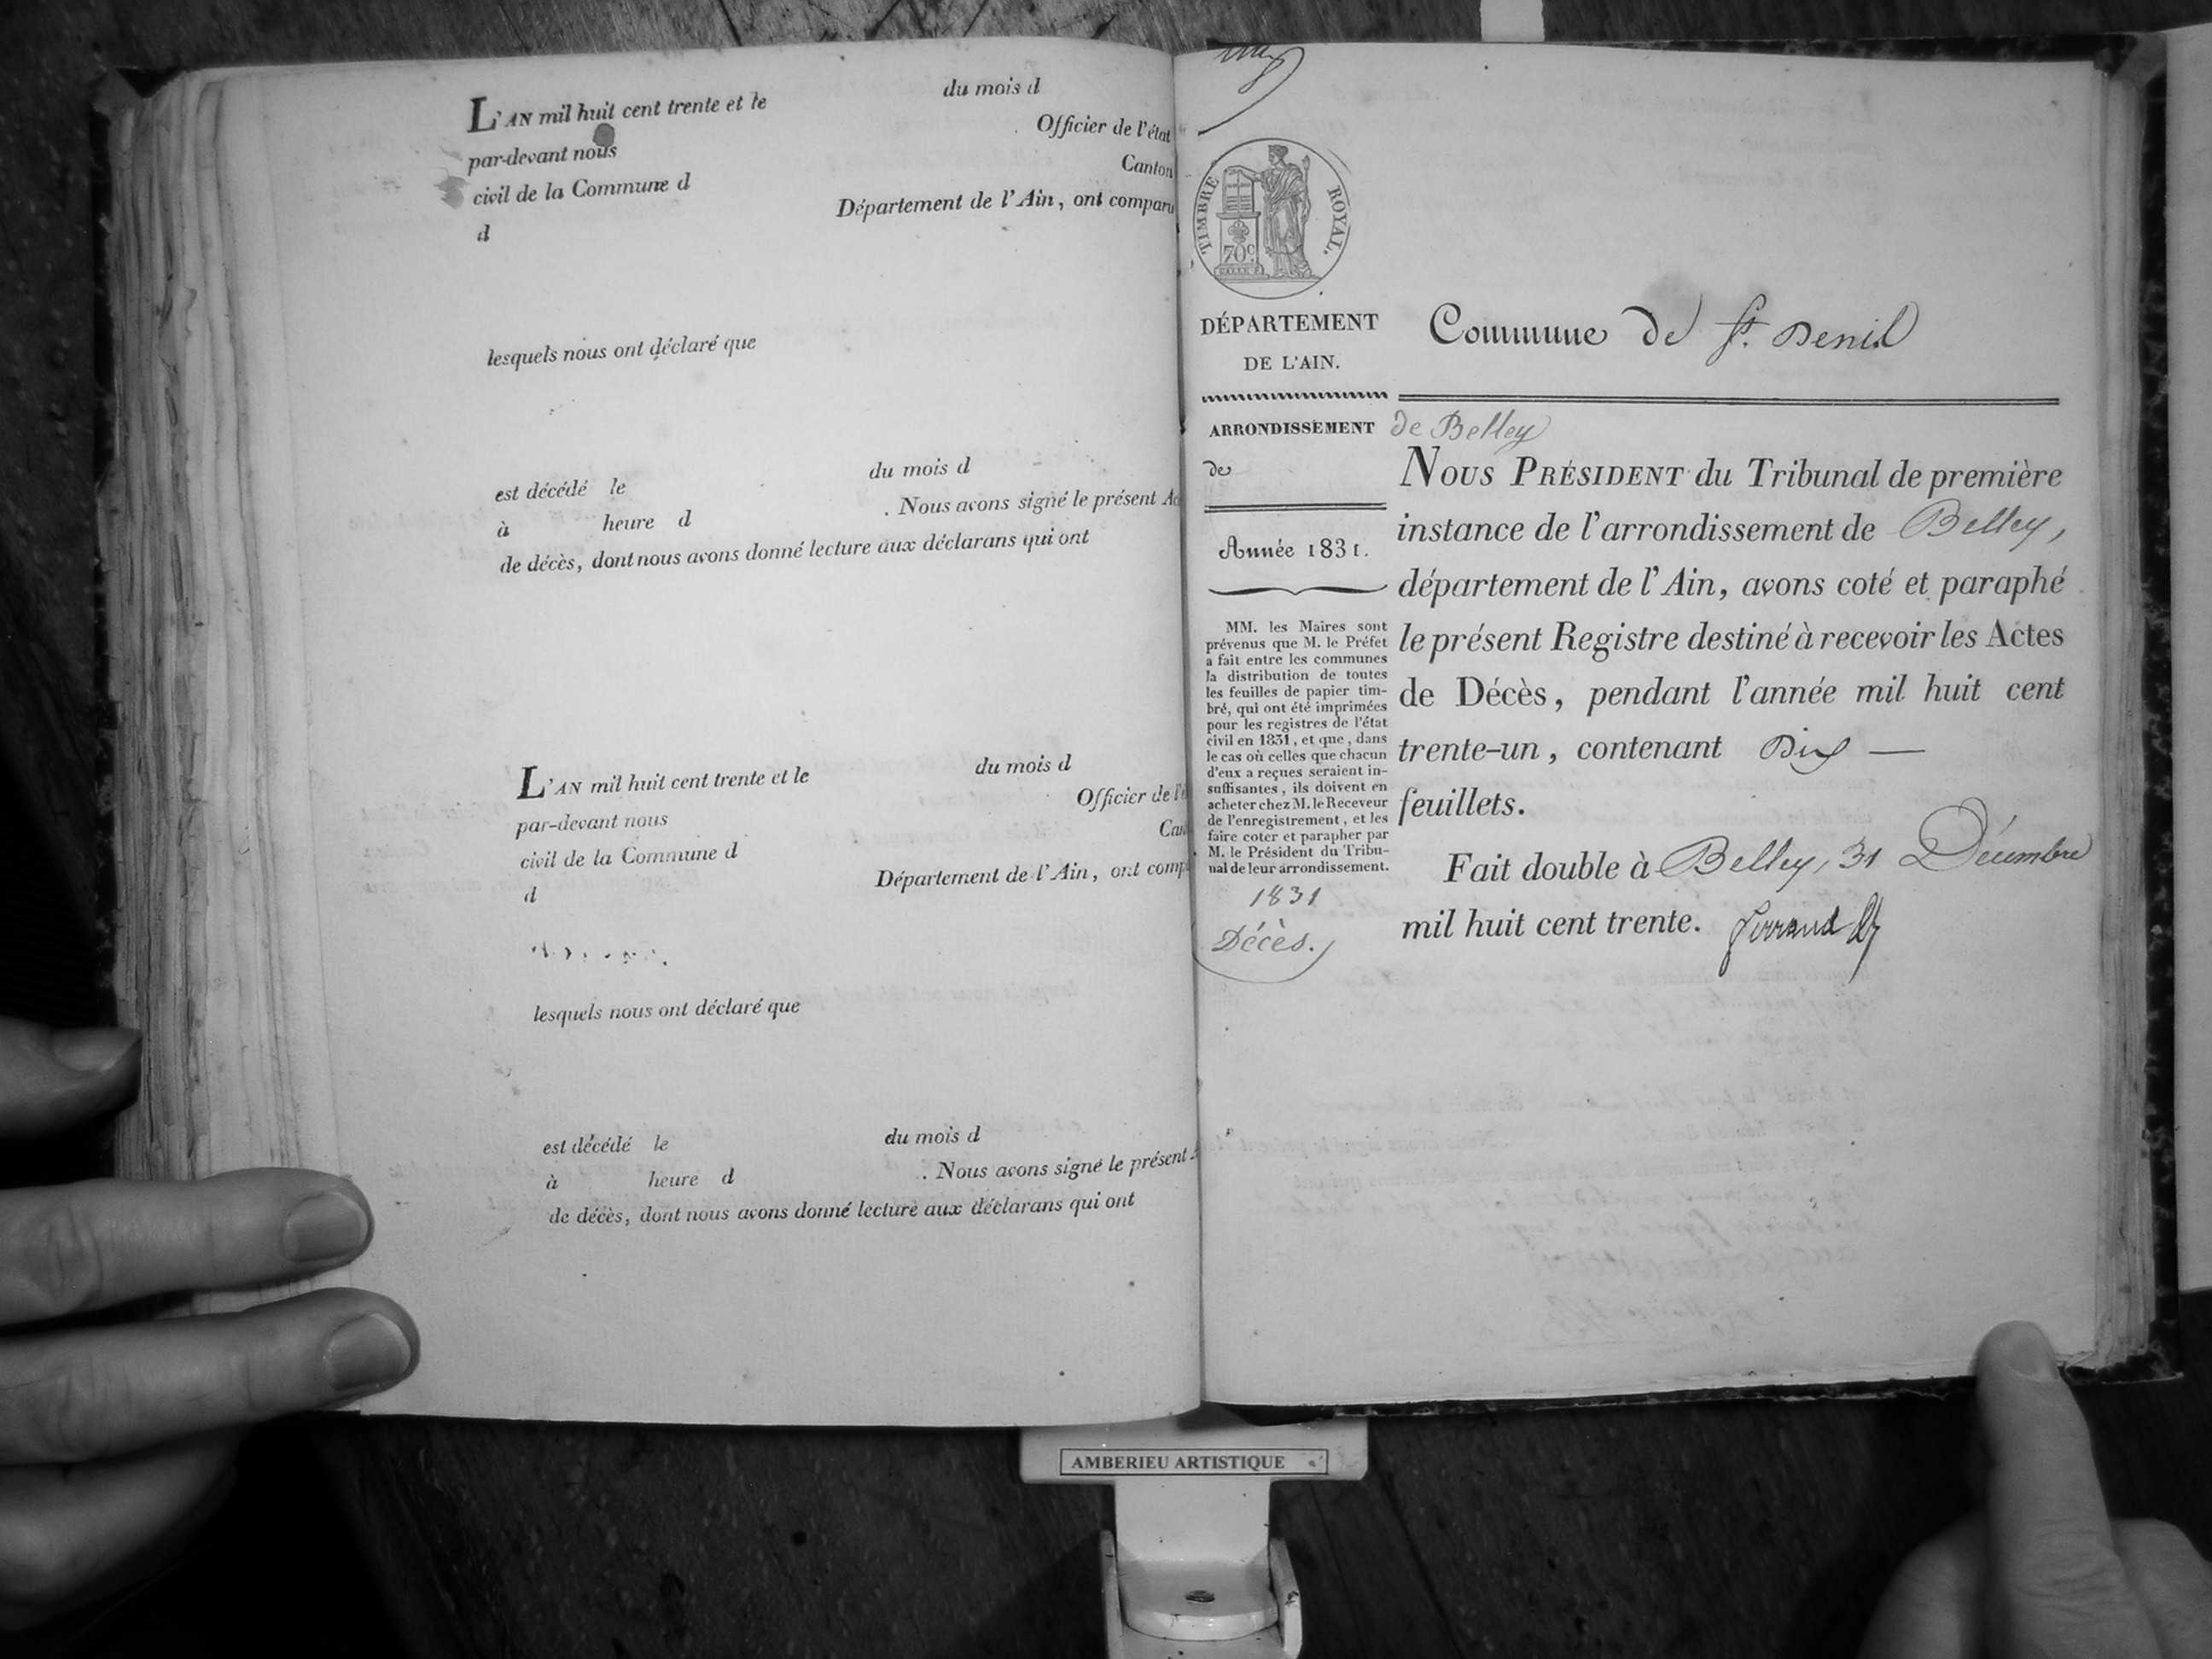 L'AN mil huit cent trente et le du mois d
par-devant nous Officier de l'état
civil de la Commune d Canton
d Département de l'Ain, ont comparu
lesquels nous ont déclaré que
est décédé le du mois d
à heure d . Nous avons signé le présent Ac
de décès, dont nous avons donné lecture aux déclarans qui ont
L'AN mil huit cent trente et le du mois d
par-devant nous Officier de l'é
civil de la Commune d Can
d Département de l'Ain, ont comp
lesquels nous ont déclaré que
est décédé le du mois d
à heure d . Nous avons signé le présent A
de décès, dont nous avons donné lecture aux déclarans qui ont
TIMBRE ROYAL.
70c.
DÉPARTEMENT
DE L'AIN.
ARRONDISSEMENT de Belley
de
Année 1831.
MM. les Maires sont
prévenus que M. le Préfet
a fait entre les communes
la distribution de toutes
les feuilles de papier tim-
bré, qui ont été imprimées
pour les registres de l'état
civil en 1831, et que, dans
le cas où celles que chacun
d'eux a reçues seraient in-
suffisantes, ils doivent en
acheter chez M. le Receveur
de l'enregistrement, et les
faire coter et parapher par
M. le Président du Tribu-
nal de leur arrondissement.
1831
Décès.
Commune de St. Denis
NOUS PRÉSIDENT du Tribunal de première
instance de l'arrondissement de Belley,
département de l'Ain, avons coté et paraphé
le présent Registre destiné à recevoir les Actes
de Décès, pendant l'année mil huit cent
trente-un, contenant Dix —
feuillets.
Fait double à Belley, 31 Décembre
mil huit cent trente. Ferrand
AMBERIEU ARTISTIQUE